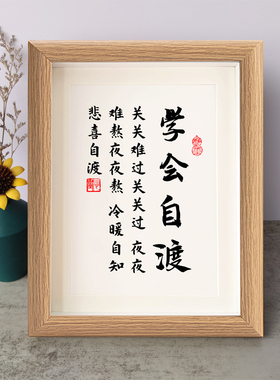 学会自渡
关关难过关关过 夜夜
难熬夜夜熬 冷暖自知
悲喜自渡